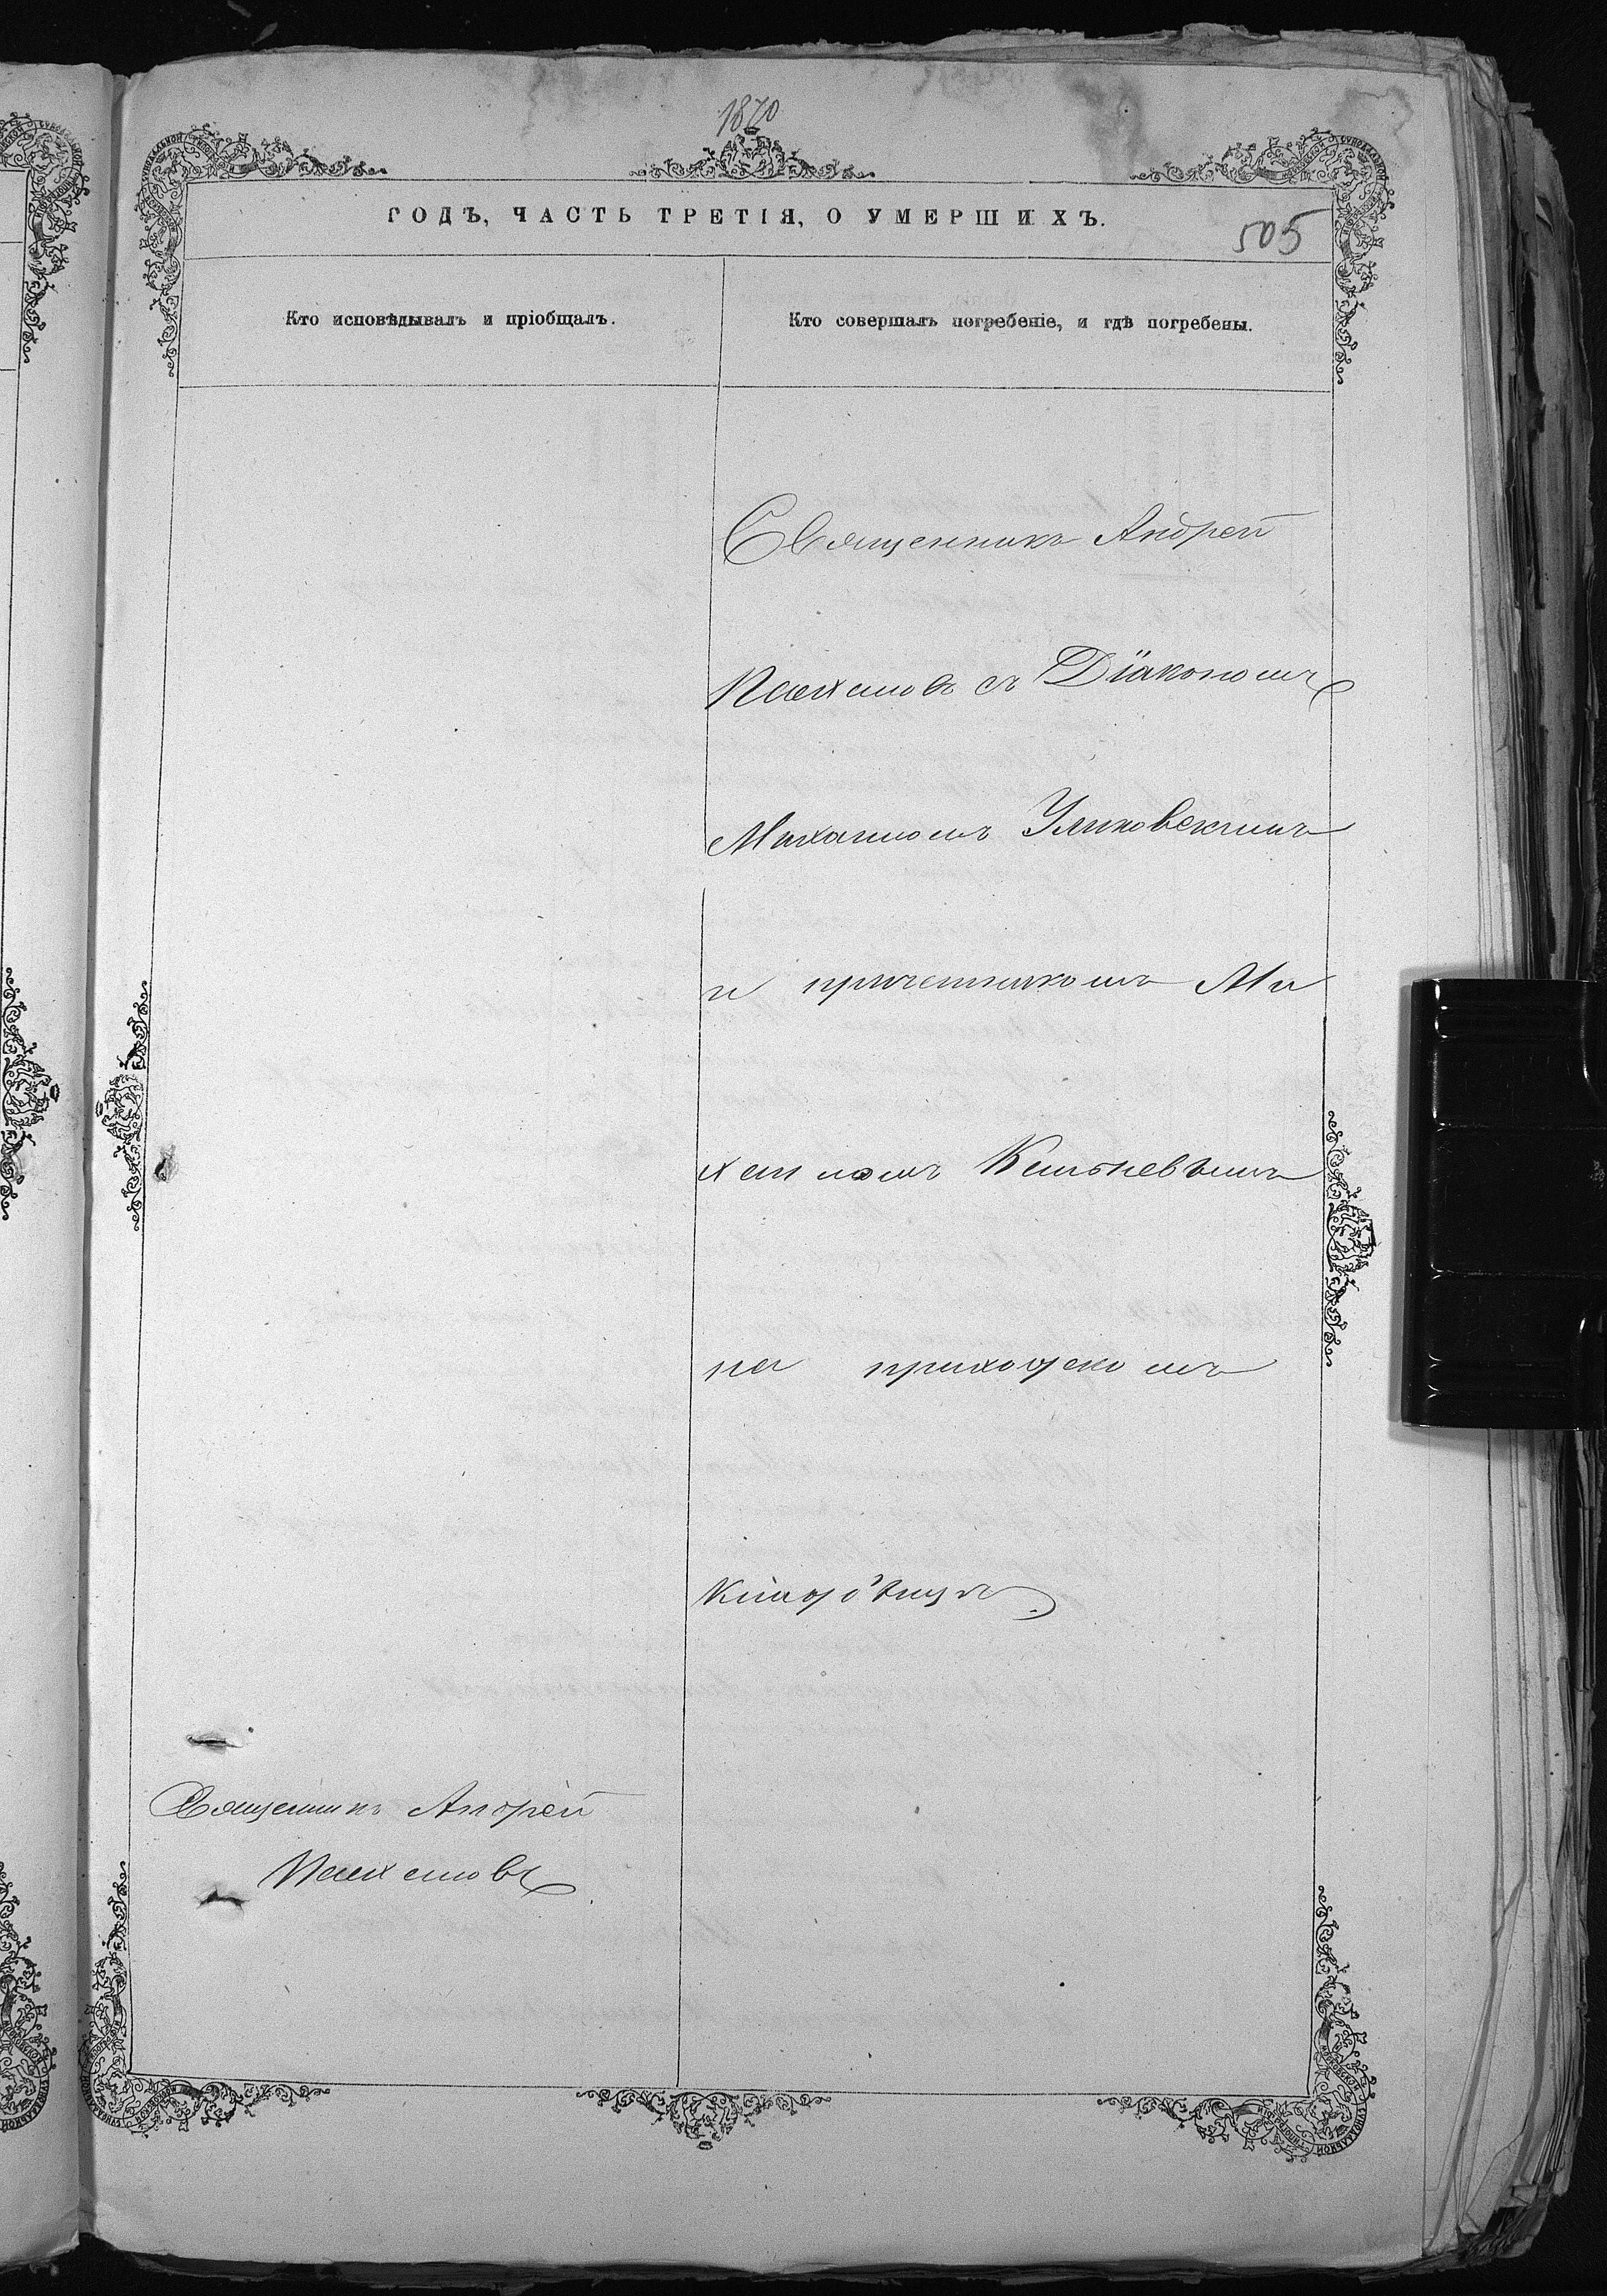 1870
ГОДЪ, ЧАСТЬ ТРЕТІЯ, О УМЕРШИХЪ.
505
Кто исповѣдывалъ и пріобщалъ.
Кто совершалъ погребеніе, и гдѣ погребены.
Священникъ Андрей
съ Діакономъ
Михаиломъ
и причетникомъ Ми
хаиломъ
на приходском
кладбищѣ
Священникъ Андрей